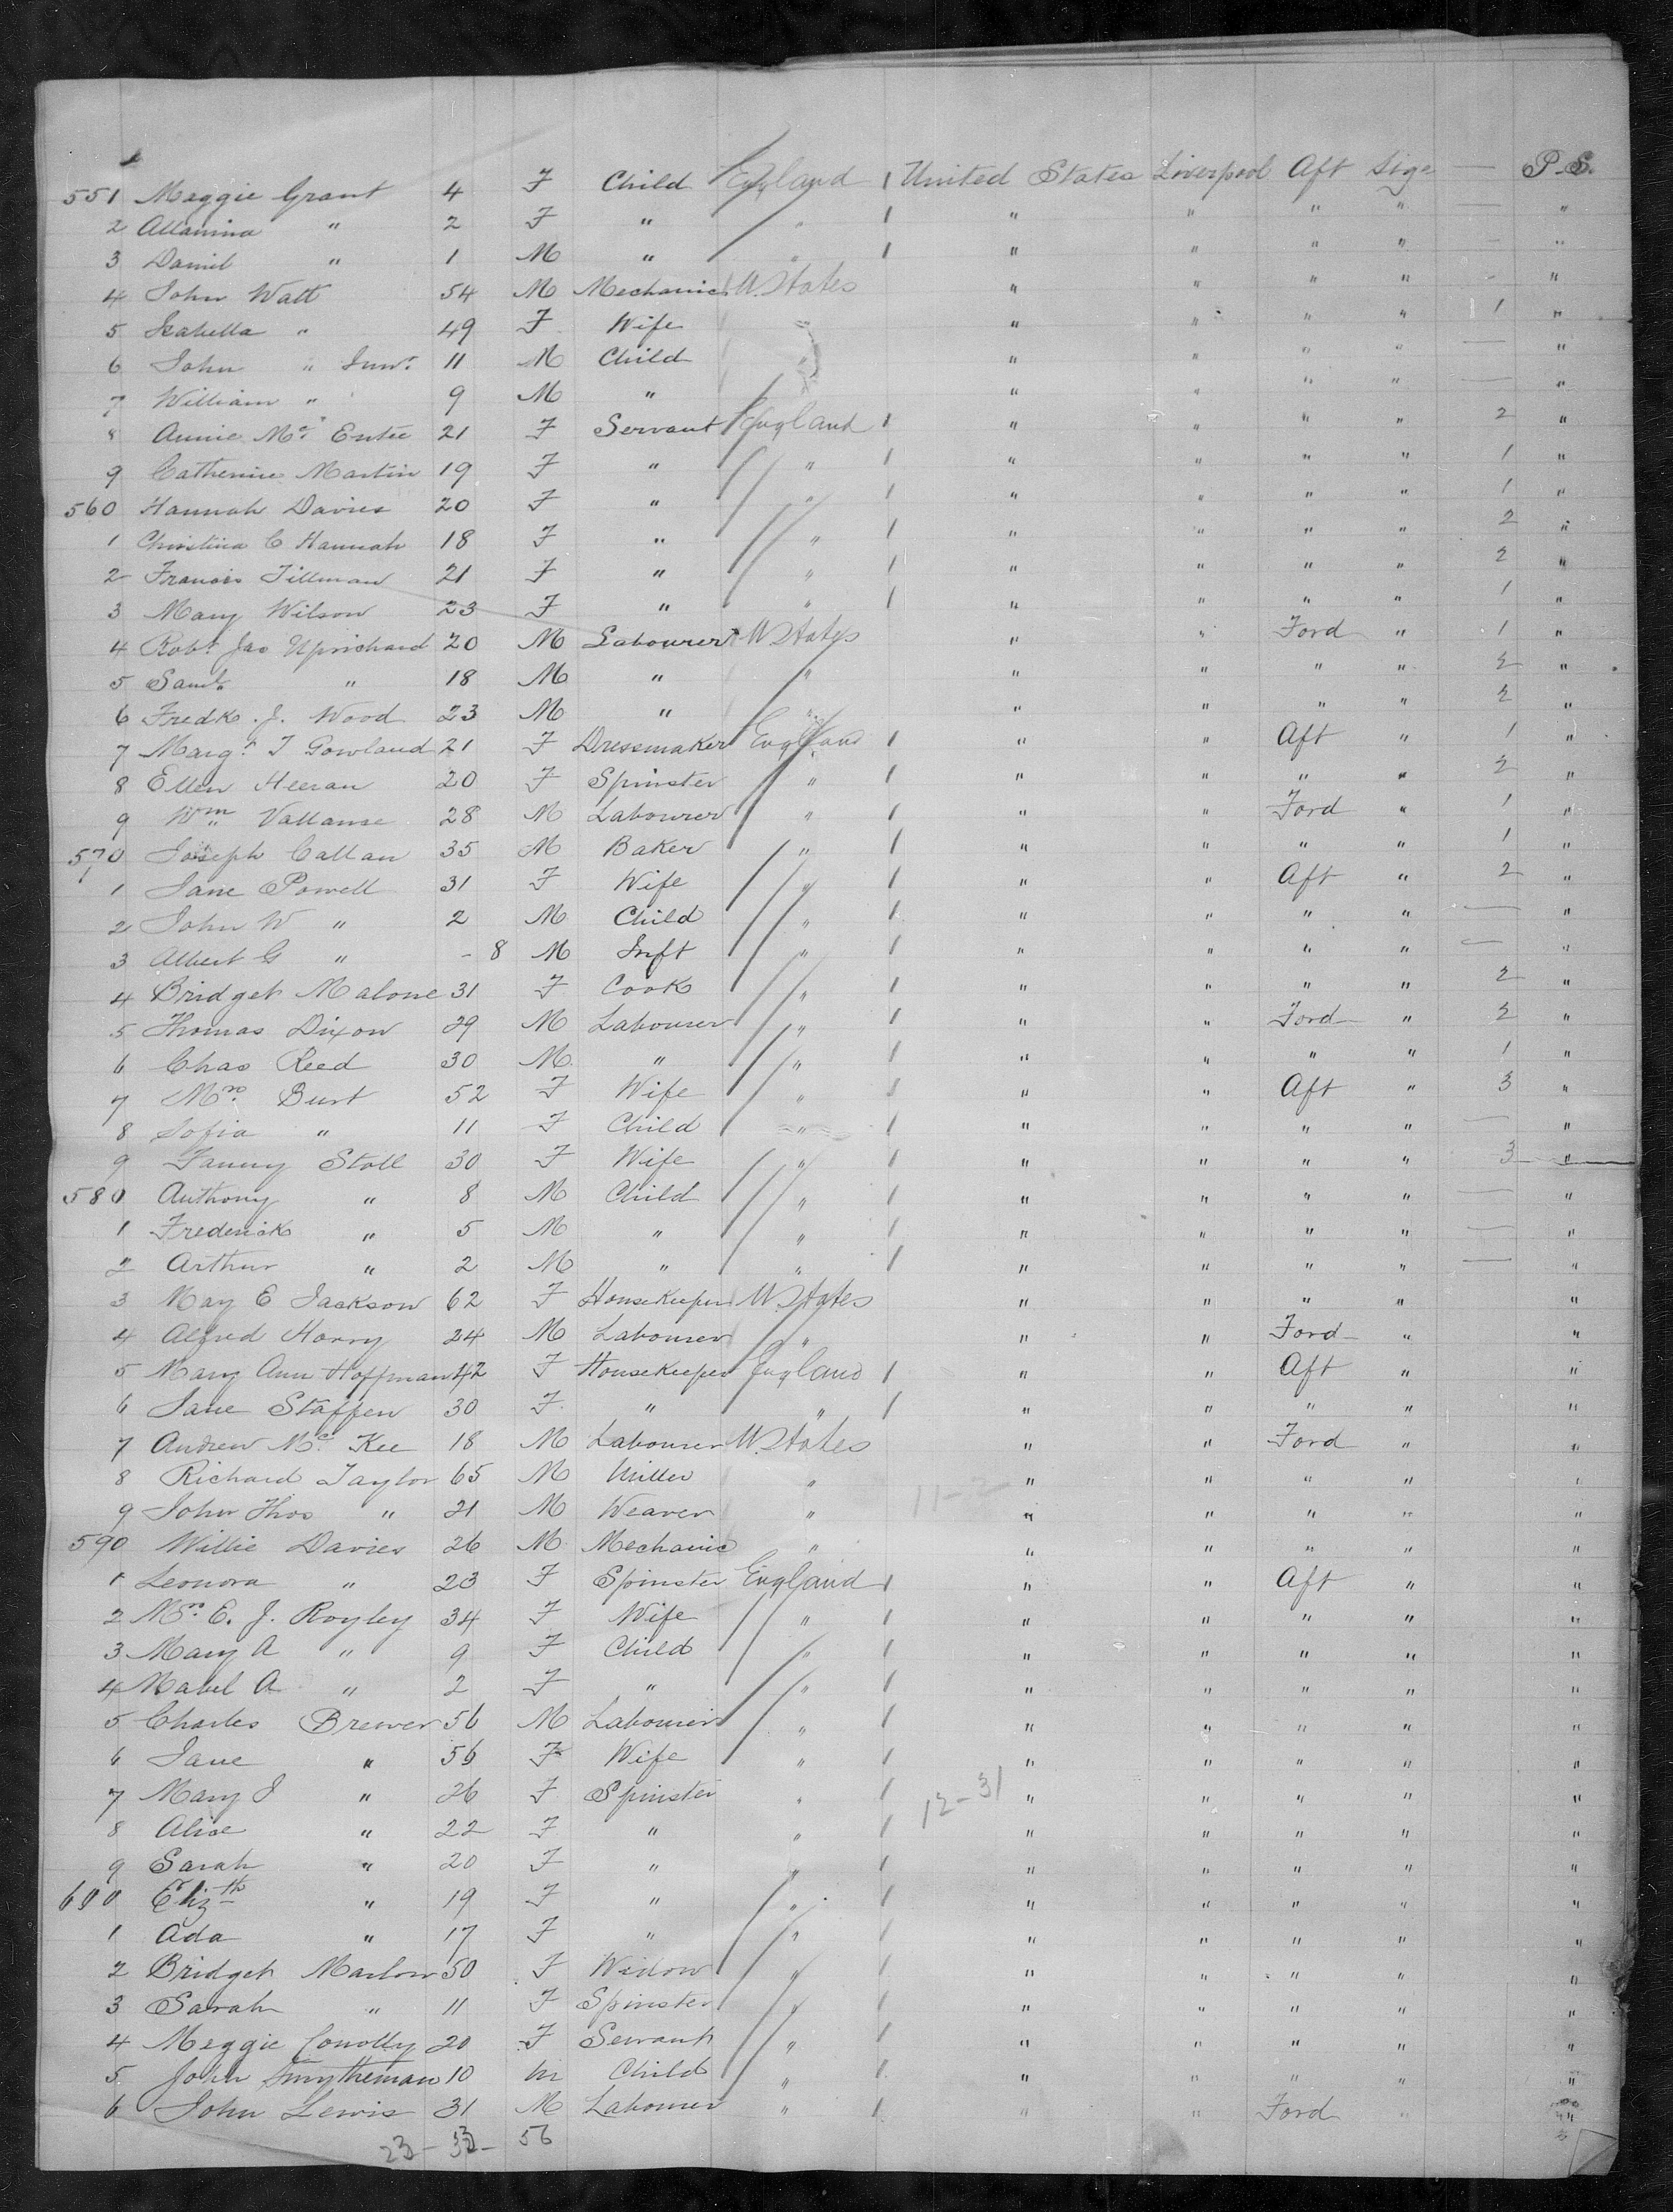 551 Maggie Grant 4 F Child England 1 United States Liverpool Aft Stge — P.S.
2 Allanina " 2 F " " 1 " " " " — "
3 Daniel " 1 M " " 1 " " " " — "
4 John Watt 54 M Mechanic U. States " " " " - "
5 Isabella " 49 F Wife " " " " " 1 "
6 John " Junr. 11 M Child " " " " " — "
7 William " 9 M " " " " " — "
8 Annie Mc. Entee 21 F Servant England 1 " " " " 2 "
9 Catherine Martin 19 F " " 1 " " " " 1 "
560 Hannah Davies 20 F " " 1 " " " " 1 "
1 Christina C Hannah 18 F " " 1 " " " " 2 "
2 Francis Tillman 21 F " " 1 " " " " 2 "
3 Mary Wilson 23 F " " 1 " " " " 1 "
4 Robt. Jas Uprichard 20 M Labourer U States " " Ford " 1 "
5 Saml. " 18 M " " " " " " 2 "
6 Fredk. J. Wood 23 M " " " " " " 2 "
7 Margt. J Gowland 21 F Dressmaker England 1 " " Aft " 1 "
8 Ellen Heeran 20 F Spinster " 1 " " " " 2 "
9 Wm Vallanse 28 M Labourer " 1 " " Ford " 1 "
570 Joseph Callan 35 M Baker " 1 " " " " 1 "
1 Jane Powell 31 F Wife " 1 " " Aft " 2 "
2 John W " 2 M Child " 1 " " " " — "
3 Albert G " - 8 M Inft " 1 " " " " — "
4 Bridget Malone 31 F Cook " 1 " " " " 2 "
5 Thomas Dixon 29 M Labourer " 1 " " Ford " 2 "
6 Chas Reed 30 M " " 1 " " " " 1 "
7 Mrs. Burt 52 F Wife " 1 " " Aft " 3 "
8 Sofia " 11 F Child " 1 " " " " — "
9 Fanny Stoll 30 F Wife " 1 " " " " 3 "
580 Anthony " 8 M Child " 1 " " " " — "
1 Frederick " 5 M " " 1 " " " " — "
2 Arthur " 2 M " " 1 " " " " — "
3 May E Jackson 62 F Housekeeper U. States " " " " "
4 Alfred Harry 24 M Labourer " " " Ford " "
5 Mary Ann Hoffman 42 F Housekeeper England 1 " " Aft " "
6 Jane Staffen 30 F " " 1 " " " " "
7 Andrew Mc. Kee 18 M Labourer U. States " " Ford " "
8 Richard Taylor 65 M Miller " " " " " "
9 John Thos " 21 M Weaver " 11-2 " " " " "
590 Willie Davies 26 M Mechanic " " " " " "
1 Leonora " 23 F Spinster England 1 " " Aft " "
2 Mrs. E. J. Royley 34 F Wife " 1 " " " " "
3 Mary A " 9 F Child " 1 " " " " "
4 Mabel A " 2 F " " 1 " " " " "
5 Charles Brewer 56 M Labourer " 1 " " " " "
6 Jane " 56 F Wife " 1 " " " " "
7 Mary J " 26 F Spinster " 1 12-31 " " " " "
8 Alice " 22 F " " 1 " " " " "
9 Sarah " 20 F " " 1 " " " " "
600 Elizth " 19 F " " 1 " " " " "
1 Ada " 17 F " " 1 " " " " "
2 Bridget Marlow 50 F Widow " 1 " " " " "
3 Sarah " 11 F Spinster " 1 " " " " "
4 Meggie Conolly 20 F Servant " 1 " " " " "
5 John Smytheman 10 M Child " 1 " " " " "
6 John Lewis 31 M Labourer " 1 " " Ford " "
23 - 33 - 56